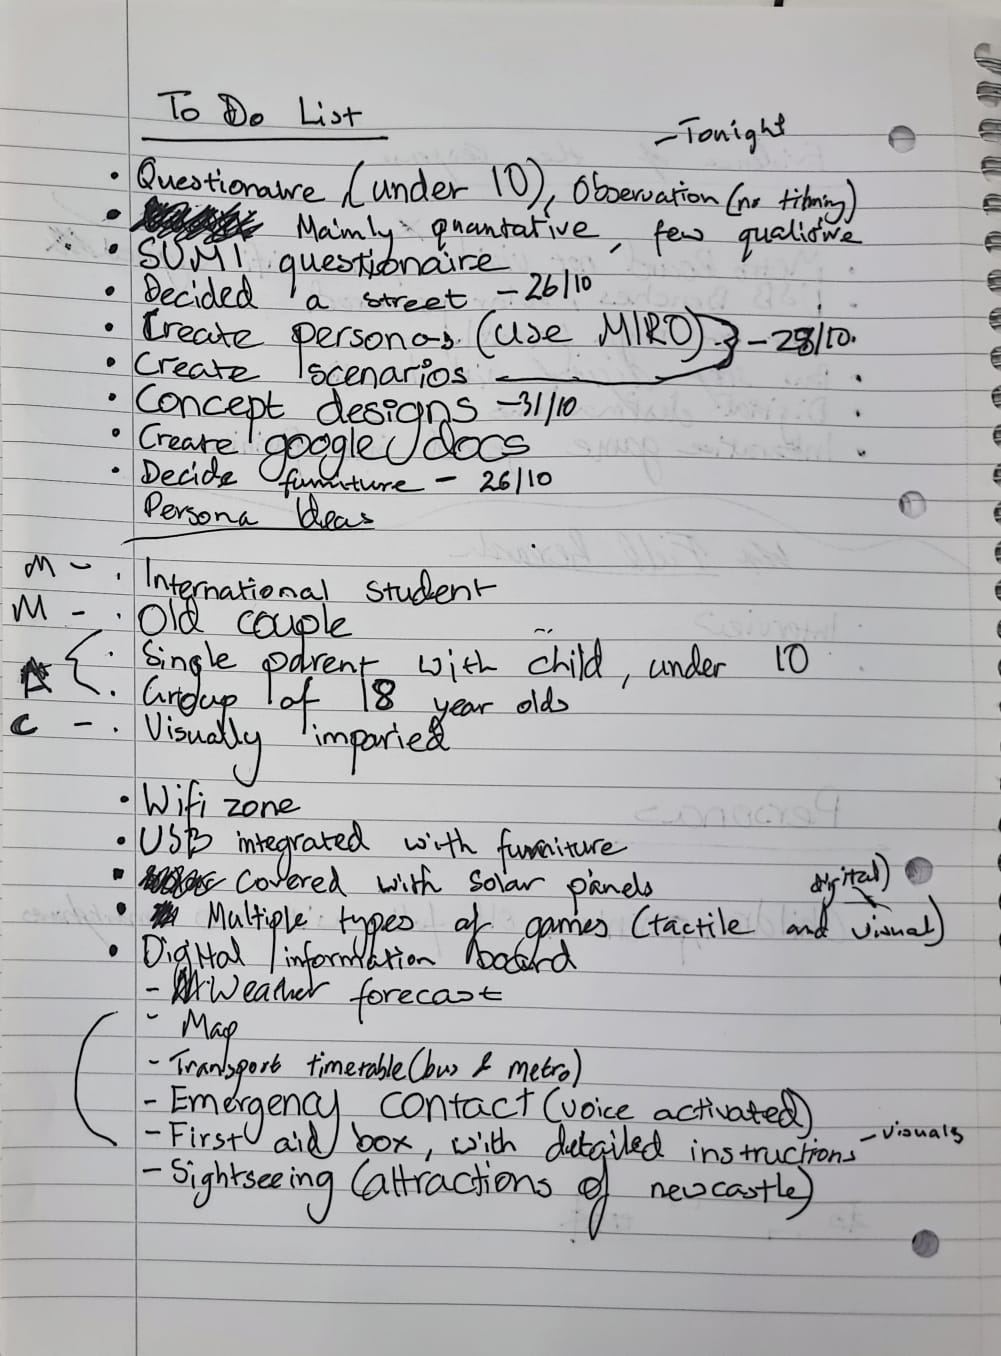 To Do List
- Tonight
• Questionaire (under 10), Observation (no timing)
• Mainly quantative, few qualitive
• SUMI questionaire
• Decided a street - 26/10
• Create personas (use MIRO) } - 28/10.
• Create scenarios
• Concept designs - 31/10
• Create google docs
• Decide furniture - 26/10
Persona Ideas
M - . International student
M - . Old couple
A { . Single parent with child, under 10
. Group of 18 year olds
C - . Visually imparied
• Wifi zone
• USB integrated with furniture
• Covered with solar panels
digital)
• Multiple types of games (tactile and visual)
• Digital information board
- Weather forecast
- Map
- Transport timetable (bus & metro)
- Emergency contact (voice activated)
- First aid box, with detailed instructions - visuals
- Sightseeing (attractions of newcastle)